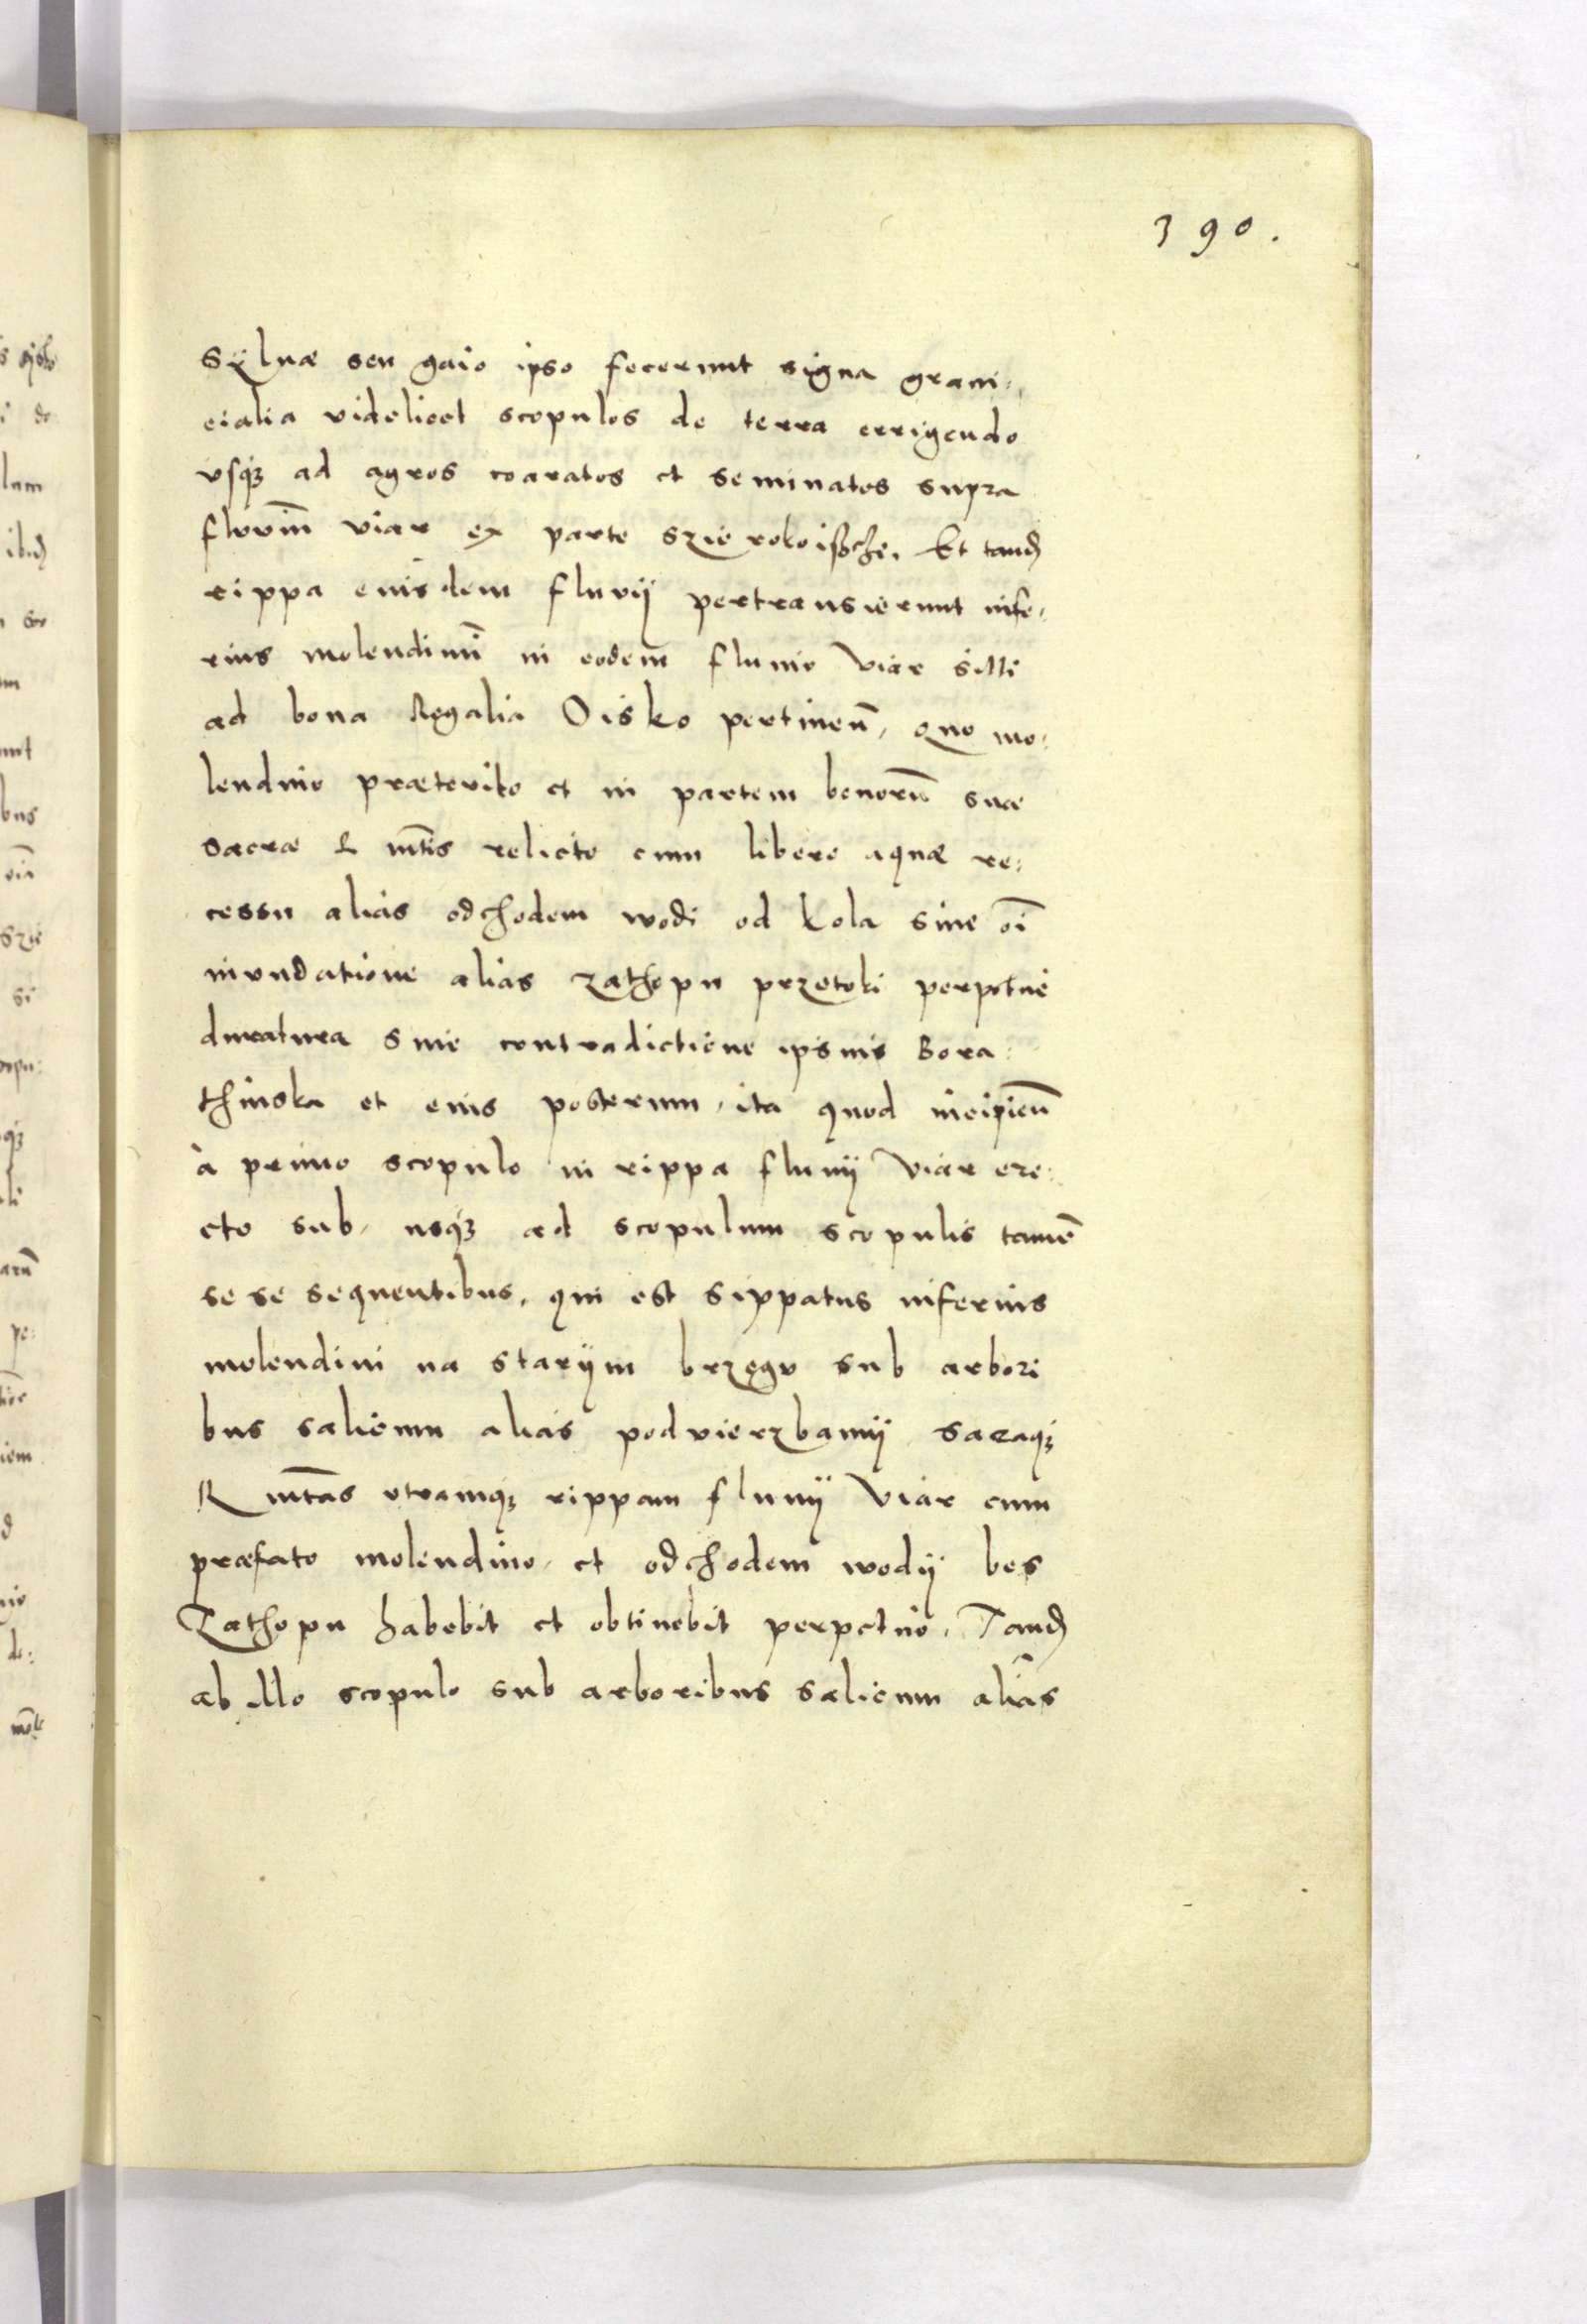 390.
Sylvæ seu gaio ipso fecerunt signa grani-
cialia videlicet scopulos de terra errigendo
vsq3 ad agros coaratos et seminatos supra
fluviũ Viar ex parte Szierokoische. Et tand
rippa eiusdem fluvij pertransierunt infe-
rius molendinũ in eodem fluuio Viar sitti
ad bona Regalia Oisko pertineñ, Quo mo-
lendino præterito et in partem bonorũ suæ
Sacræ R mt̃is relicto cum libero aquæ re-
cessu alias odchodem wodi od kola sine oĩ
inundatione alias zathopu przetoki perpetue
duratura sine contradictione ipsius Bora-
thinska et eius posterum, ita quod incipieñ
à primo scopulo in rippa fluuij Viar ere-
cto sub, usq3 ad scopulum scopulis tamẽ
se se sequentibus, qui est sippatus inferius
molendini na starijm brzegv sub arbori
bus salicum alias podvierzbamij Sacraq3
R mt̃as vtramq3 rippam fluuij Viar cum
præfato molendino, et odchodem wodij bes
Zathopu habebit et obtinebit perpetuo, Tand
ab illo scopulo sub arboribus salicum alias